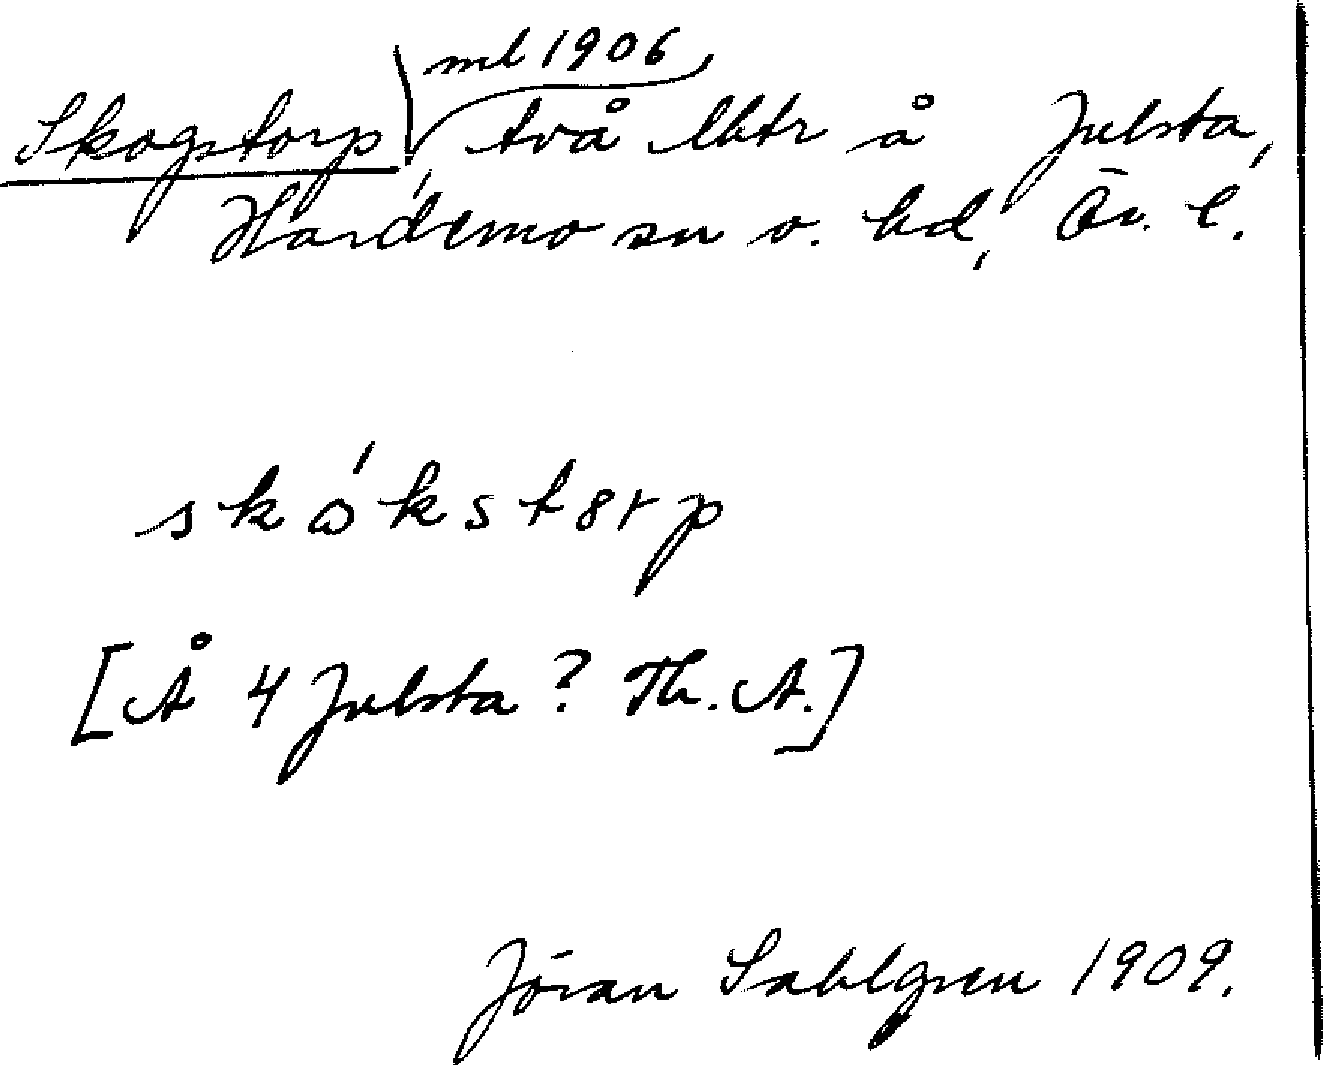 ml 1906
Skogstorp, två lbtr å Julsta,
Hardemo sn o. hd, Ör. l.
skókstorp
[Å 4 Julsta? Th. A.]
Jöran Sahlgren 1909.